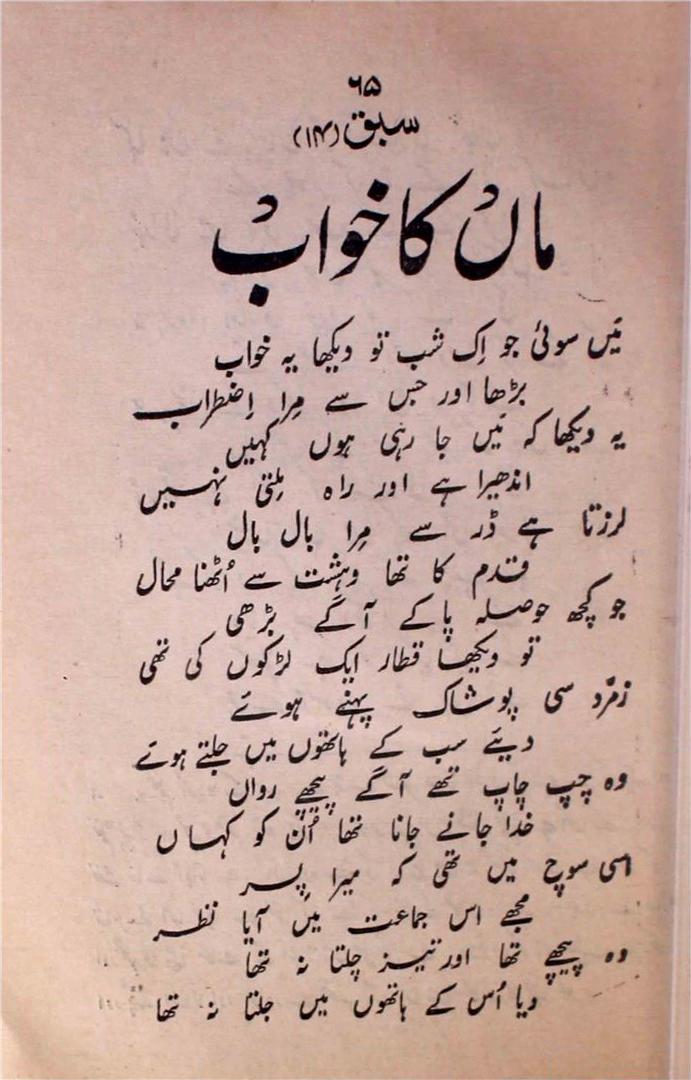 ۶۵
سبق (۱۴)
ماں کا خواب
مَیں سوئی جو اِک شب تو دیکھا یہ خواب
بڑھا اور جس سے مِرا اِضطراب
یہ دیکھا کہ مَیں جا رہی ہوں کہیں
اندھیرا ہے اور راہ مِلتی نہیں
لرزتا ہے ڈر سے مِرا بال بال
قدم کا تھا وہشت سے اُٹھنا محال
جو کچھ حوصلہ پاکے آگے بڑھی
تو دیکھا قطار ایک لڑکوں کی تھی
زمرّد سی پوشاک پہنے ہوئے
دیئے سب کے ہاتھوں میں جلتے ہوئے
وہ چپ چاپ تھے آگے پیچھے رواں
خدا جانے جانا تھا اُن کو کہاں
اسی سوچ میں تھی کہ میرا پِسر
مجھے اس جماعت میں آیا نظر
وہ پیچھے تھا اور تیز چلتا نہ تھا
دیا اُس کے ہاتھوں میں جلتا نہ تھا